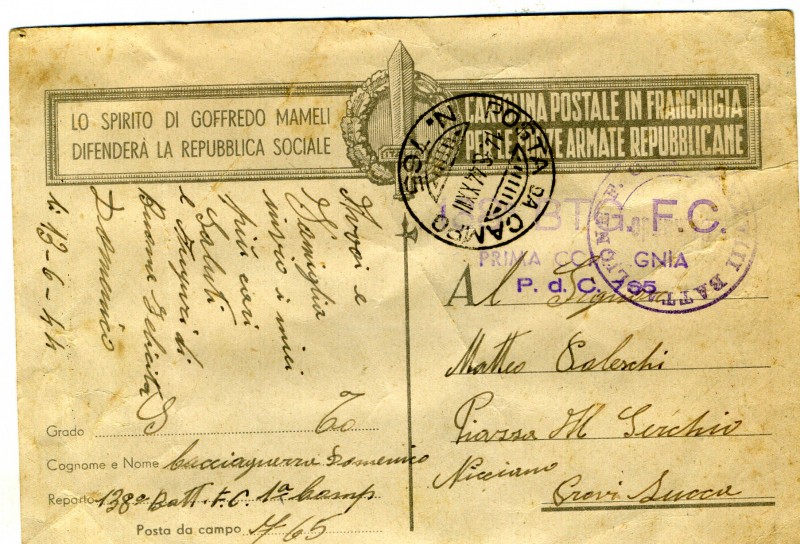 LO SPIRITO DI GOFFREDO MAMELI
DIFENDERÀ LA REPUBBLICA SOCIALE
CARTOLINA POSTALE IN FRANCHIGIA
PER LE FORZE ARMATE REPUBBLICANE
POSTA DA CAMPO N. 765
44 XXII
BTG. F.C.
PRIMA COMPAGNIA
P. d. C. 765
BATTAGLIONE F.
A voi e
Famiglia
invio i miei
più cari
Saluti
e Auguri di
Buona Felicità
Domenico
li 13-6-44
Al Signor
Matteo Paleschi
Piazza Al Serchio
Nicciano
Provi Lucca
Grado S To
Cognome e Nome Cacciaguerra Domenico
Reparto 138º Batt. F.C. 1ª Comp
Posta da campo 765